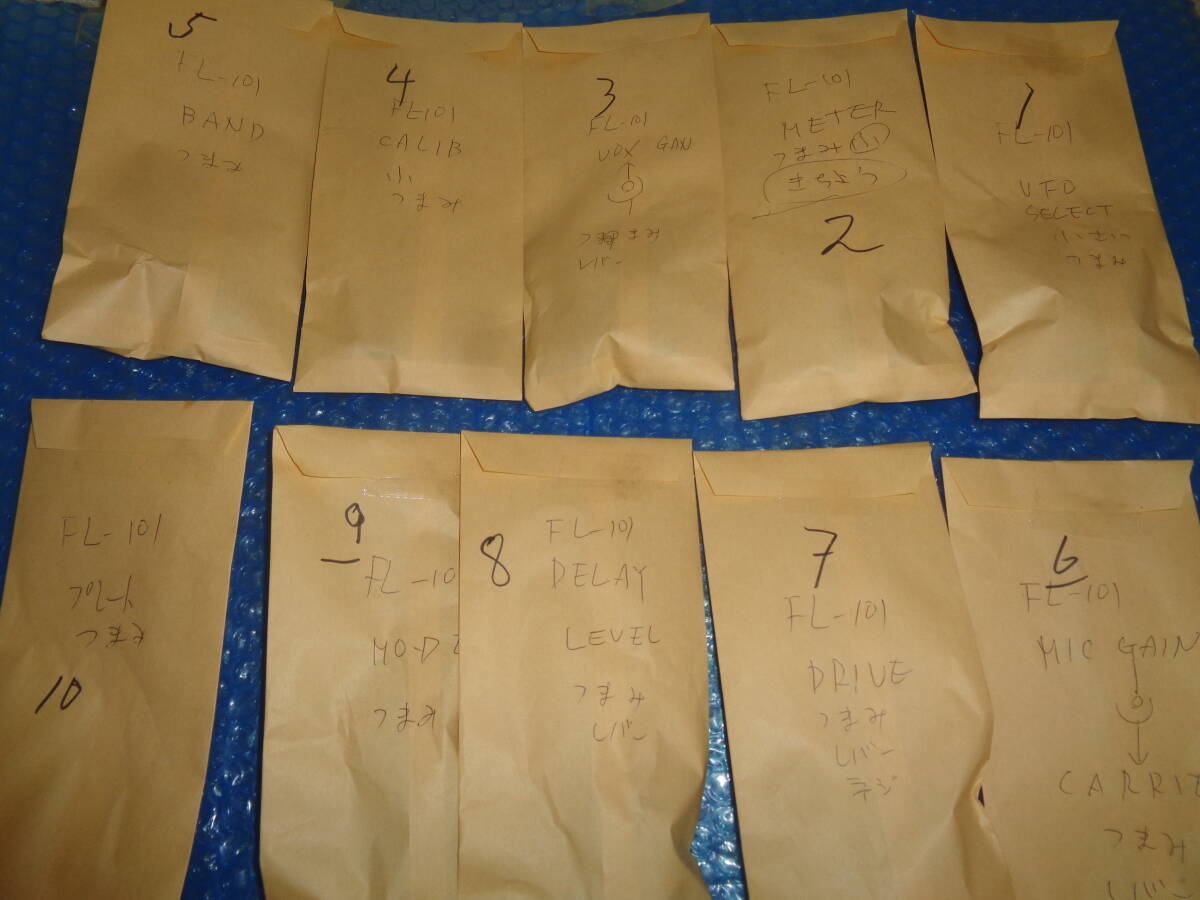 5
FL-101
BAND
つまみ
4
FL101
CALIB
小
つまみ
3
FL-101
VOX GAIN
つまみ
レバー
FL-101
METER
つまみ 小
きちょう
2
1
FL-101
VFO
SELECT
小さい
つまみ
FL-101
プレート
つまみ
10
9
FL-10
MODE
つまみ
8
FL-101
DELAY
LEVEL
つまみ
レバー
7
FL-101
DRIVE
つまみ
レバー
ネジ
6
FL-101
MIC GAIN
CARRIE
つまみ
レバー